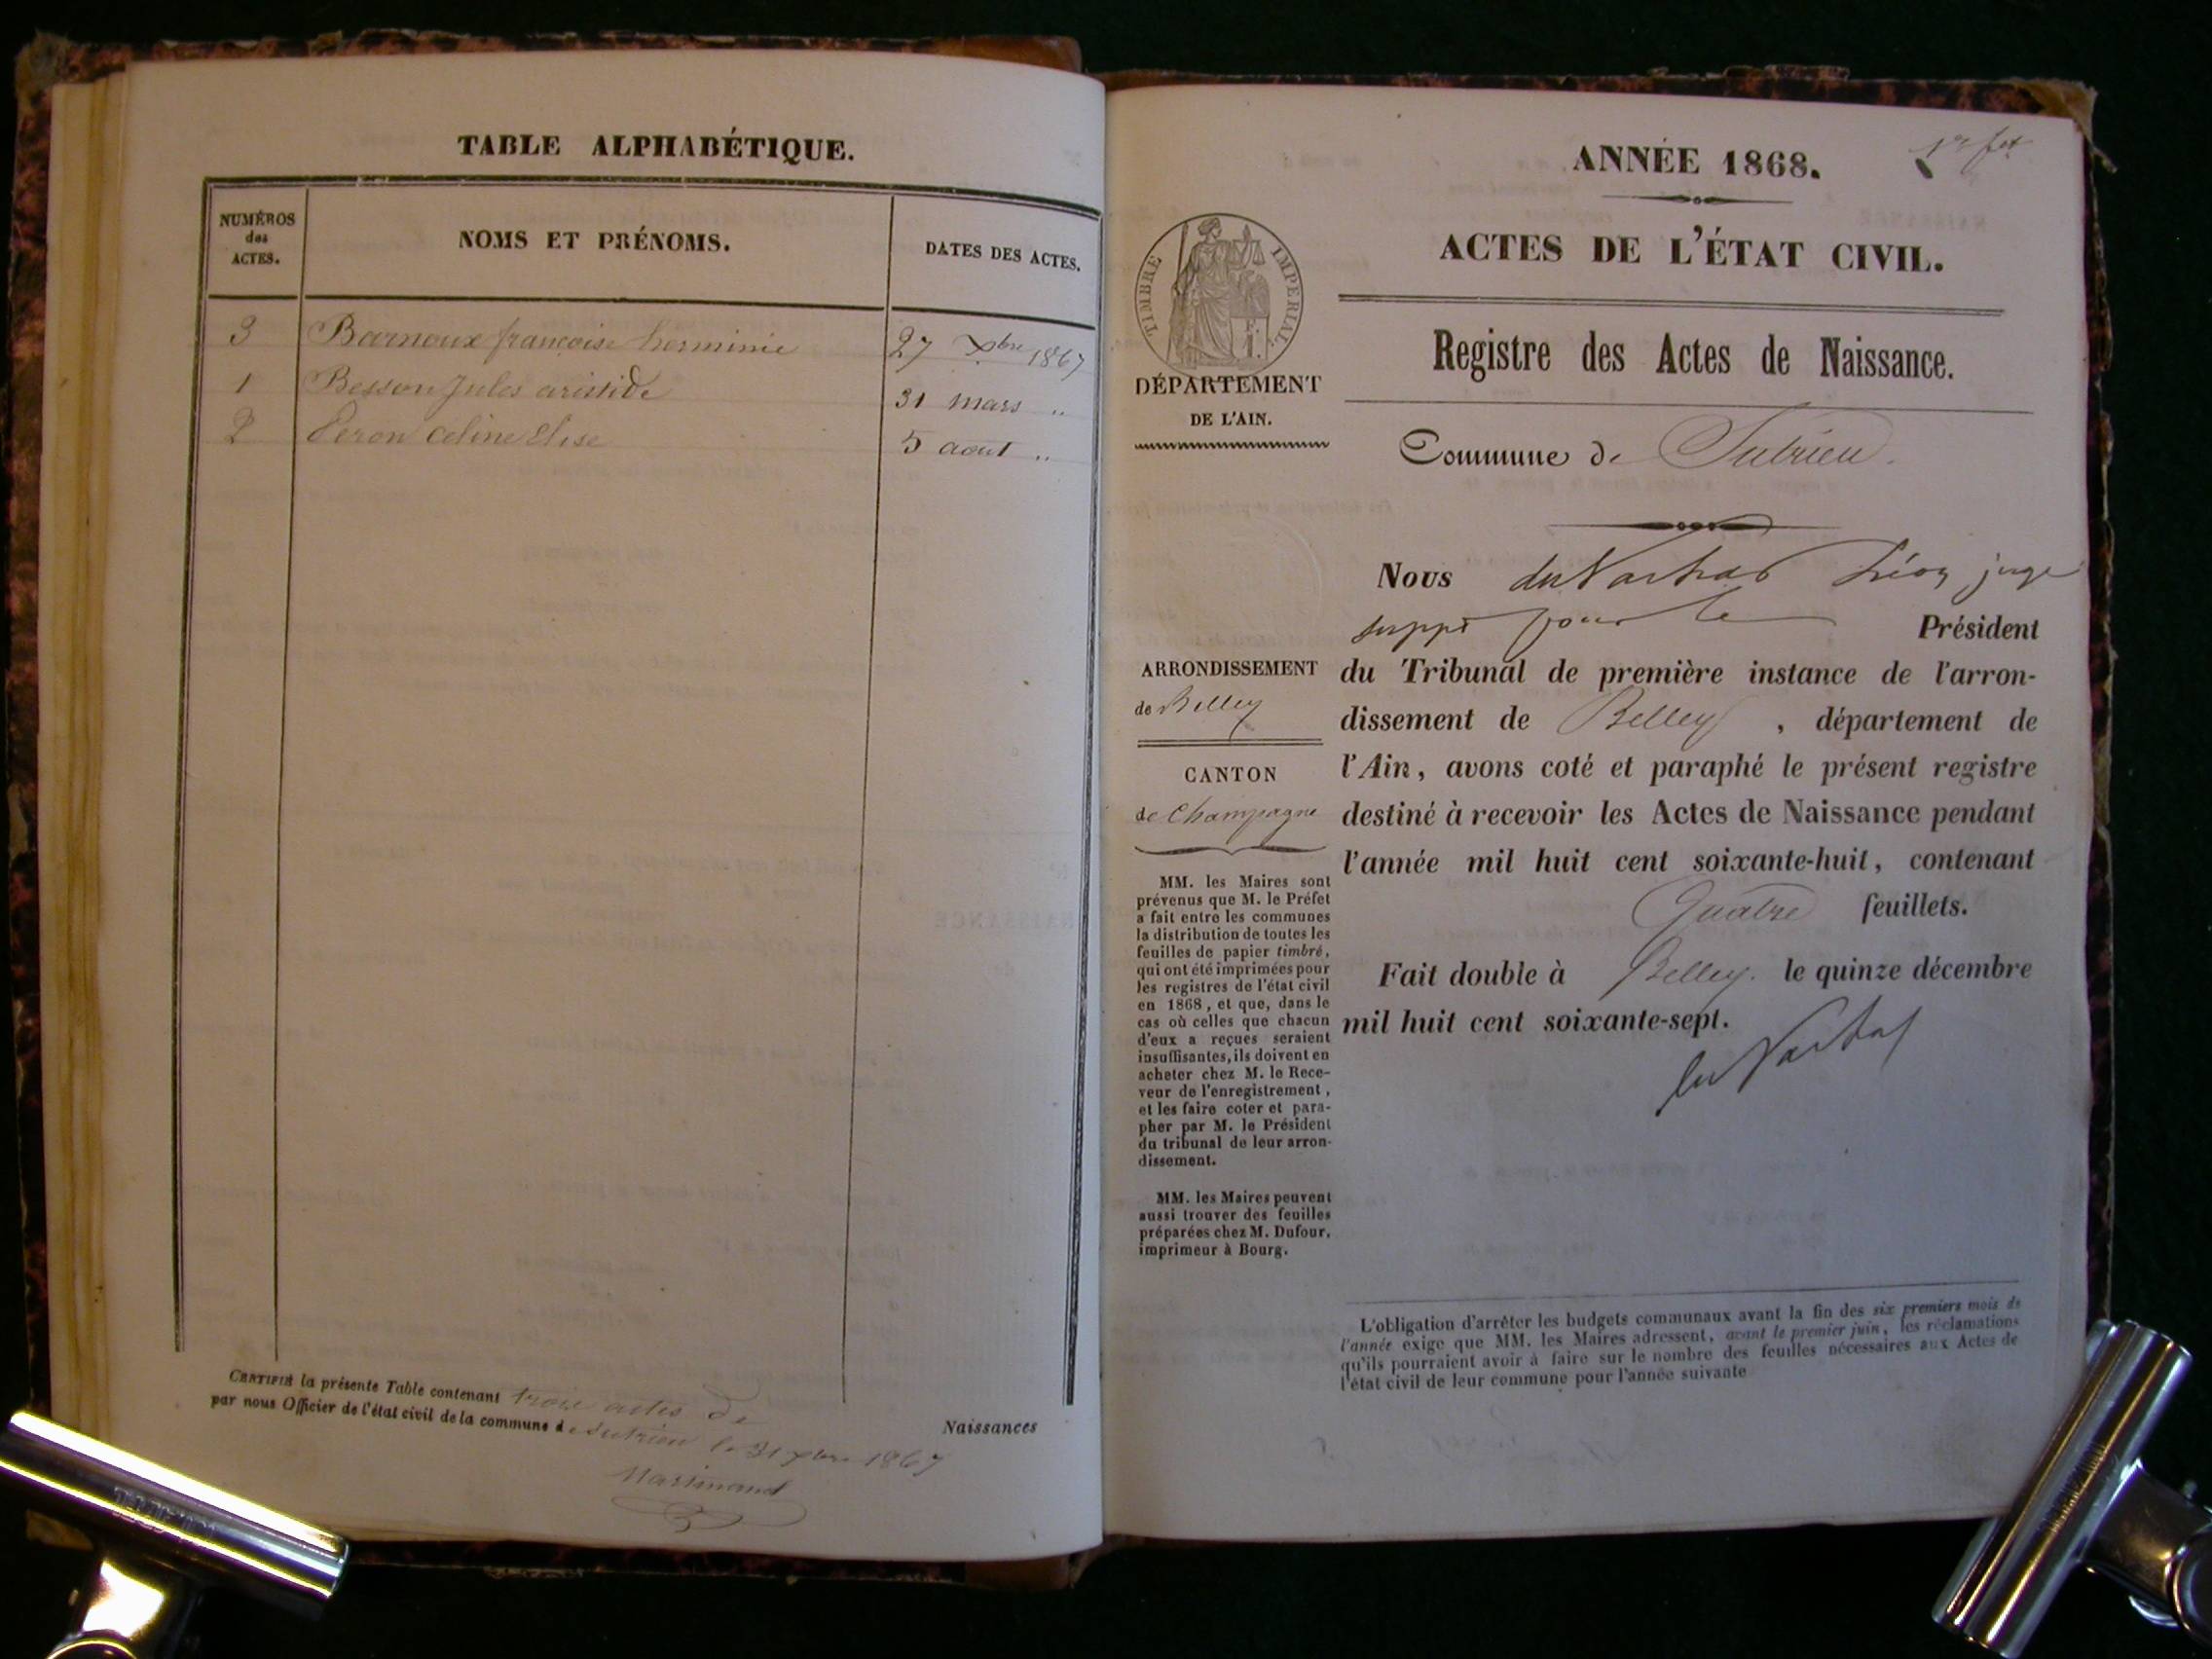 TABLE ALPHABÉTIQUE.
NUMÉROS
des
ACTES.
NOMS ET PRÉNOMS.
DATES DES ACTES.
3 Barnoux françoise herminie 27 Xbre 1867
1 Besson Jules aristide 31 mars "
2 Peron Celine Elise 5 aout "
CERTIFIÉ la présente Table contenant trois actes de Naissances
par nous Officier de l'état civil de la commune de Sutrieu le 31 Xbre 1867
1er fet
ANNÉE 1868.
ACTES DE L'ÉTAT CIVIL.
TIMBRE IMPERIAL
DÉPARTEMENT
DE L'AIN.
Registre des Actes de Naissance.
Commune de Sutrieu.
ARRONDISSEMENT
de Belley
CANTON
de Champagne
MM. les Maires sont
prévenus que M. le Préfet
a fait entre les communes
la distribution de toutes les
feuilles de papier timbré,
qui ont été imprimées pour
les registres de l'état civil
en 1868, et que, dans le
cas où celles que chacun
d'eux a reçues seraient
insuffisantes, ils doivent en
acheter chez M. le Rece-
veur de l'enregistrement,
et les faire coter et para-
pher par M. le Président
du tribunal de leur arron-
dissement.
MM. les Maires peuvent
aussi trouver des feuilles
préparées chez M. Dufour,
imprimeur à Bourg.
Nous Léon juge
suppt pour le Président
du Tribunal de première instance de l'arron-
dissement de Belley, département de
l'Ain, avons coté et paraphé le présent registre
destiné à recevoir les Actes de Naissance pendant
l'année mil huit cent soixante-huit, contenant
Quatre feuillets.
Fait double à Belley. le quinze décembre
mil huit cent soixante-sept.
L'obligation d'arrêter les budgets communaux avant la fin des six premiers mois de
l'année exige que MM. les Maires adressent, avant le premier juin, les réclamations
qu'ils pourraient avoir à faire sur le nombre des feuilles nécessaires aux Actes de
l'état civil de leur commune pour l'année suivante